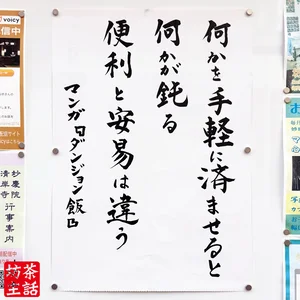 何かを手軽に済ませると
何かが鈍る
便利と安易は違う
マンガ「ダンジョン飯」
voicy
妙慶院
清岸寺
行事案内
茶話
坊主